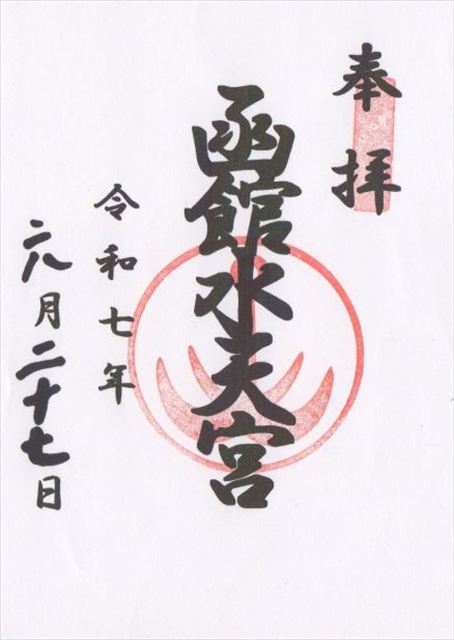 奉拝
函館水天宮
令和七年
六月二十七日